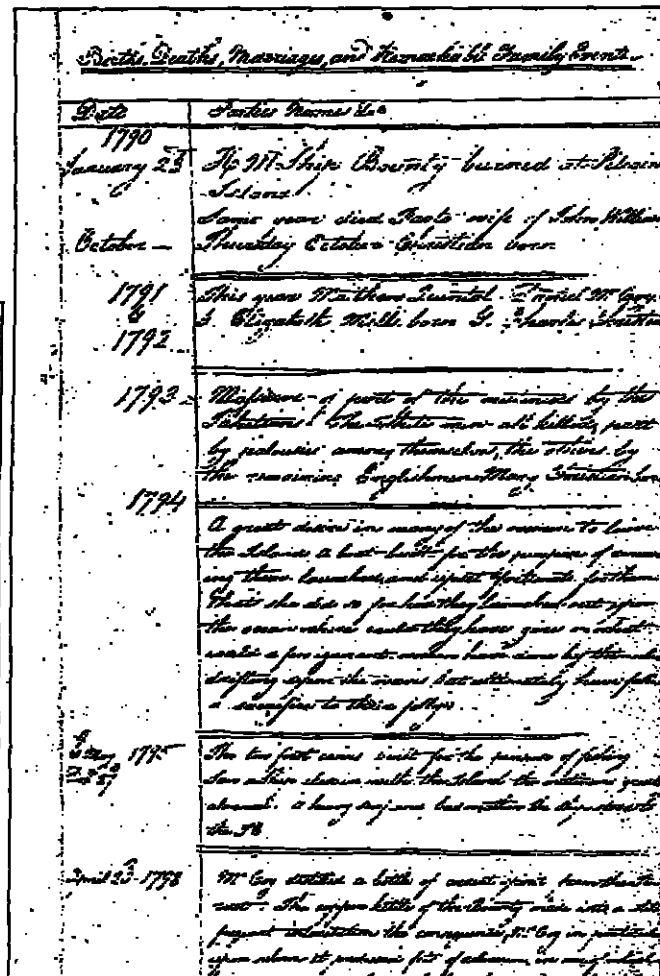 Births, Deaths, Marriages, and Remarkable Family Events.
Date Parties Names &c
1790
January 23 H. M. Ship Bounty burned at Pitcairn
Island
Same year died Fasto wife of John Williams
October — Thursday October Christian born
1791 This year Matthew Quintal Daniel McCoy
& & Elizabeth Mills born & Charles Christian
1792
1793 Massacre of part of the mutineers by the
Tahitians. The Tahitians all killed, part
by jealousies among themselves, the others by
the remaining Englishmen Mary Christian born
1794
A great desire in many of the women to leave
the Island a boat built for the purpose of
ing them launched, and upset fortunate for them
that she did so for had they launched out upon
the ocean where could they have gone or what
could a few ignorant women have done by themselves
drifting upon the waves but ultimately have fallen
a sacrifice to their folly.
May 1795 The two first canoes built for the purpose of fishing
Saw a ship close in with the Island the mutineers greatly
alarmed. a heavy surf and bad weather the ship stood
the
April 23 1798 McCoy distilled a bottle of ardent spirit from the tee
root The copper kettle of the Bounty made into a still
frequent intoxication the consequence, McCoy in particular
upon whom it produced fits of delirium, in one of which